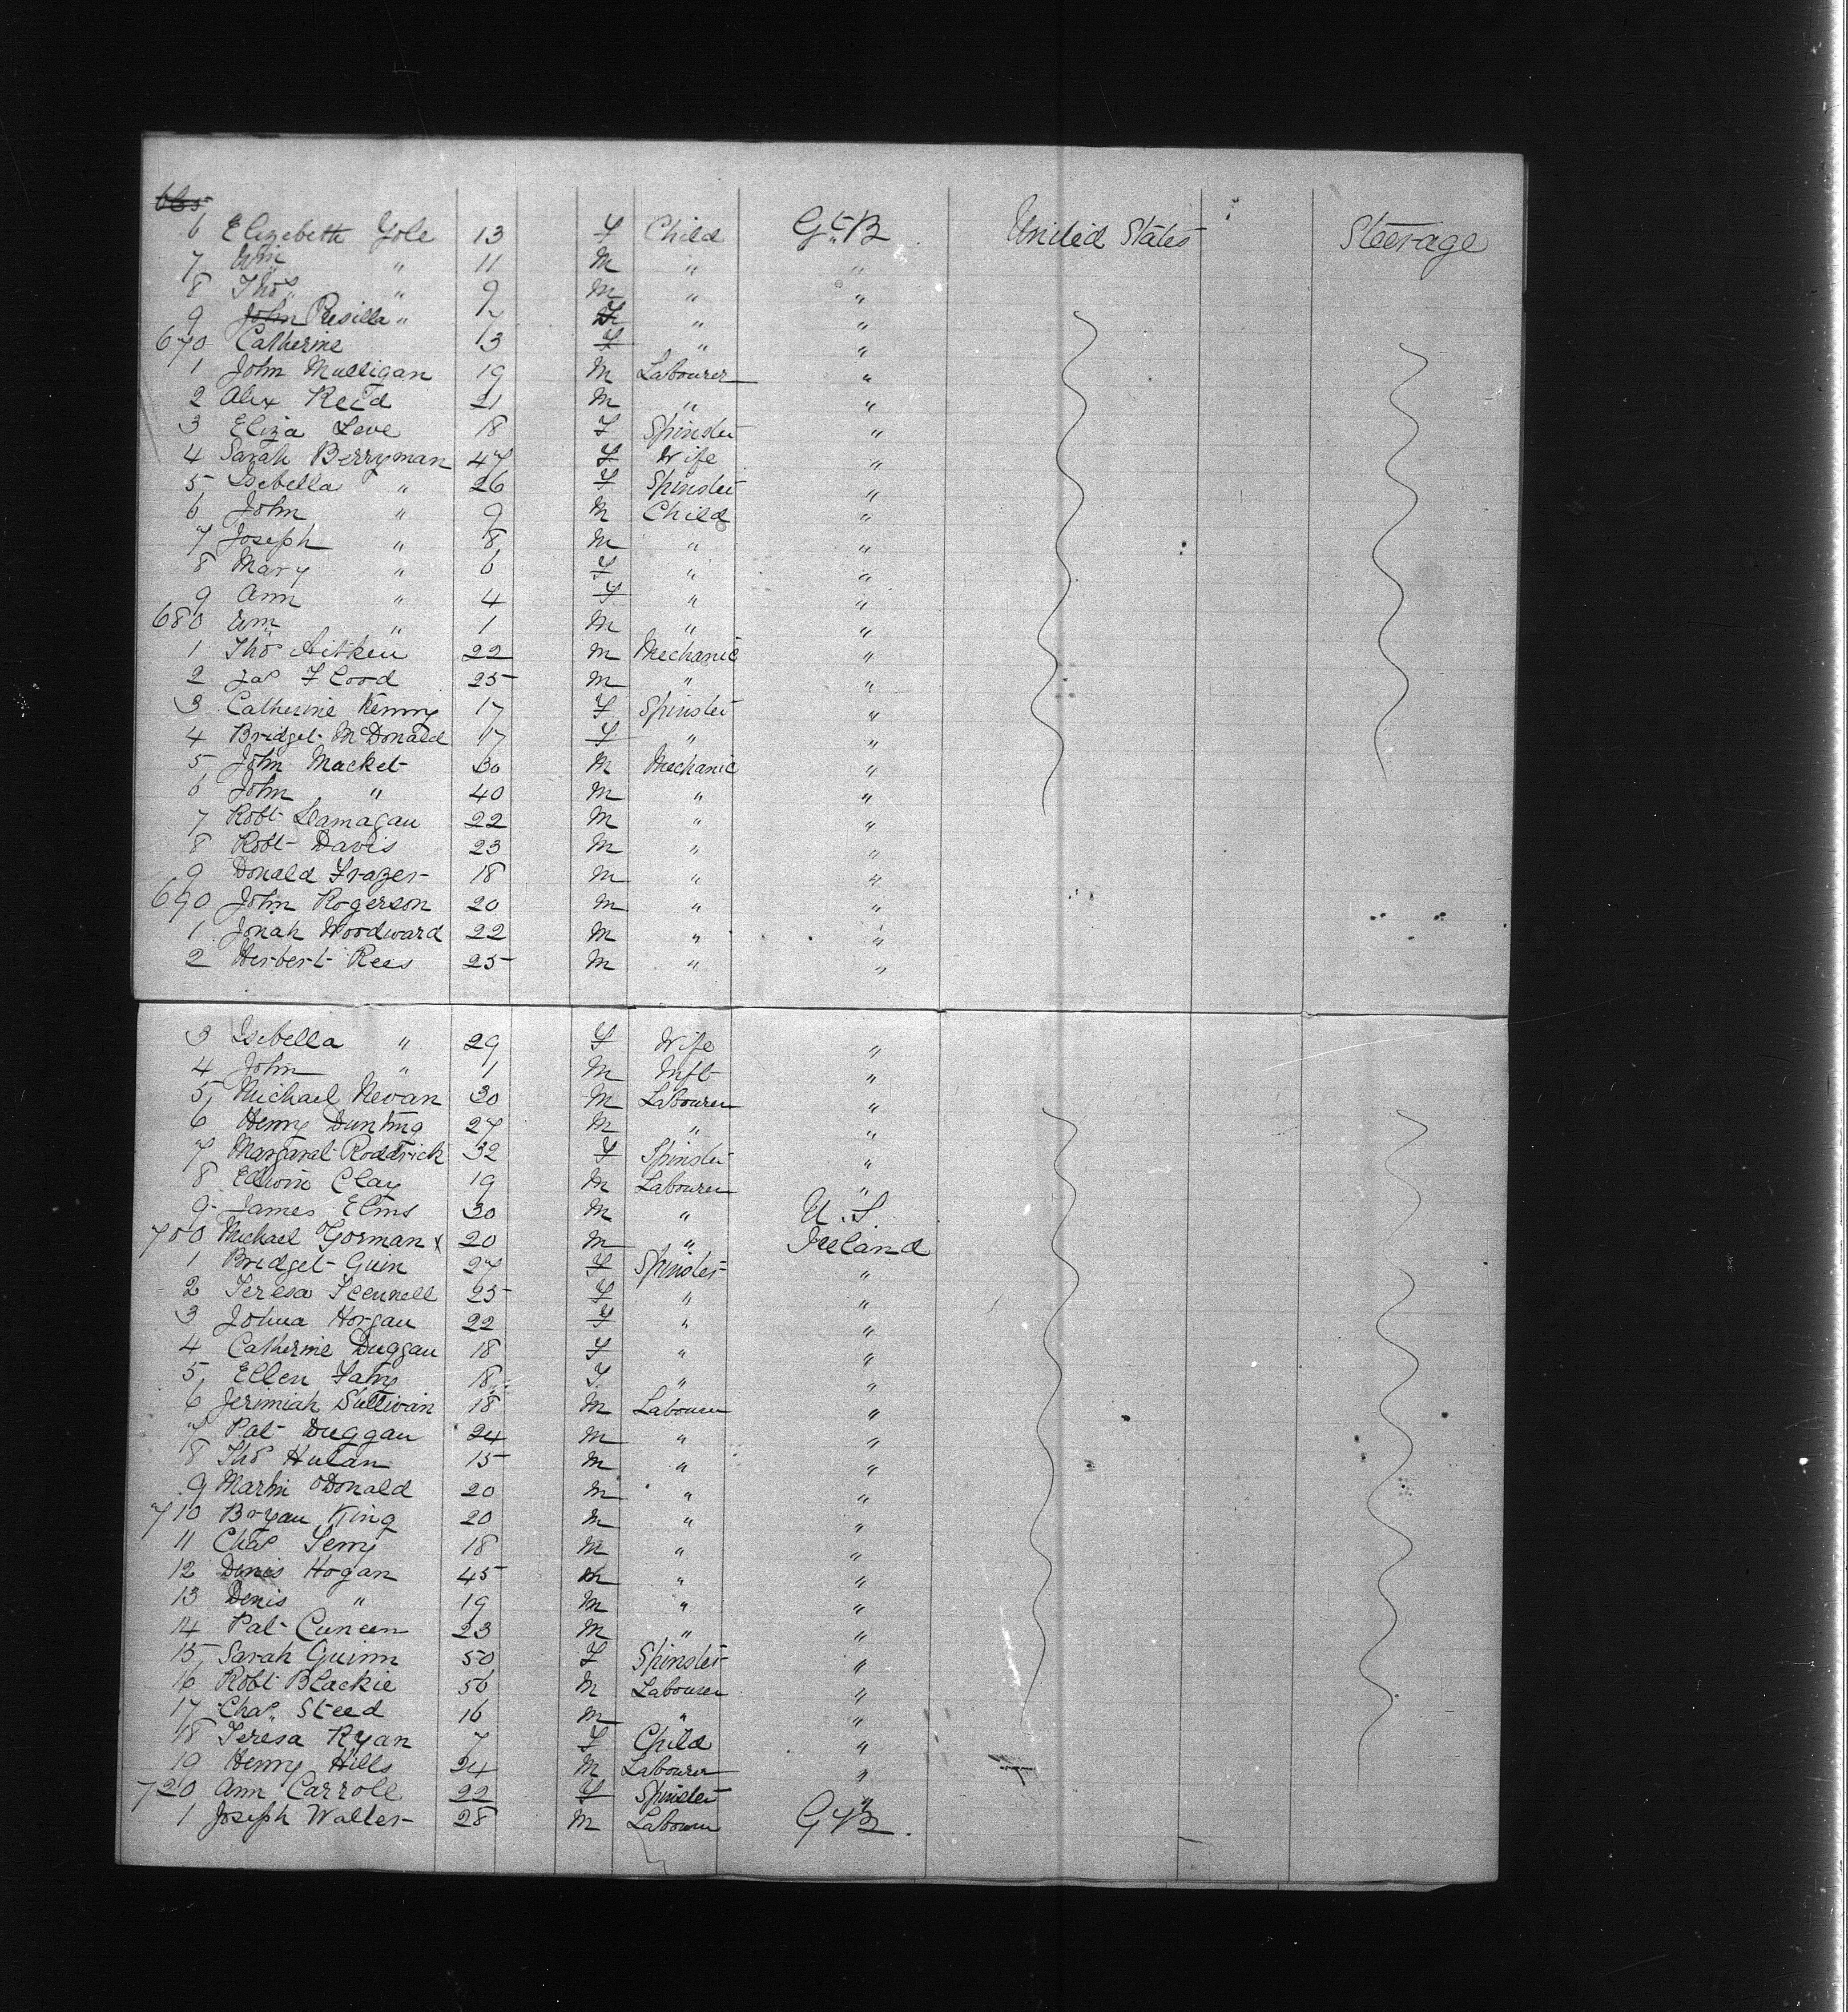 665
6 Elizebeth Yole 13 F Child Gt. B United States Steerage
7 Wm " 11 M " "
8 Thos " 9 M " "
9 John Presilla " F " "
670 Catherine 13 F " "
1 John Mulligan 19 M Labourer "
2 Alex Reid 21 M " "
3 Eliza Love 18 F Spinster "
4 Sarah Berryman 47 F Wife "
5 Isebella " 26 F Spinster "
6 John " 9 M Child "
7 Joseph " 8 M " "
8 Mary " 6 F " "
9 Ann " 4 F " "
680 Wm " 1 M " "
1 Thos Aitken 22 M Mechanic "
2 Jas Flood 25 M " "
3 Catherine Kenny 17 F Spinster "
4 Bridget McDonald 17 F " "
5 John Macket 30 M Mechanic "
6 John " 40 M " "
7 Robt 22 M " "
8 Robt Davis 23 M " "
9 Donald Frazer 18 M " "
690 John Rogerson 20 M " "
1 Jonah Woodward 22 M " "
2 Herbert Rees 25 M " "
3 Isebella " 29 F Wife "
4 John " 1 M Inft "
5 Michael Nevan 30 M Labourer "
6 Henry Dunting 27 M " "
7 Margaret Roddrick 32 F Spinster "
8 Edwin Clay 19 M Labourer "
9 James Elms 30 M " U.S.
700 Michael Gorman x 20 M " Ireland
1 Bridget Guin 27 F Spinster "
2 Teresa 25 F " "
3 Johna Horgan 22 F " "
4 Catherine Duggan 18 F " "
5 Ellen Fahy 18 F " "
6 Jerimiah Sullivan 18 M Labourer "
7 Pat Duggan 24 M " "
8 Thos Hulan 15 M " "
9 Martin ODonald 20 M " "
710 Bryan King 20 M " "
11 Chas 18 M " "
12 Denis Hogan 45 M " "
13 Denis " 19 M " "
14 Pat Cuneen 23 M " "
15 Sarah Guinn 50 F Spinster "
16 Robt Blackie 56 M Labourer "
17 Chas. Steed 16 M " "
18 Teresa Ryan 7 F Child "
19 Henry Hills 24 M Labourer "
720 Ann Carroll 22 F Spinster "
1 Joseph Walter 28 M Labourer Gt B.